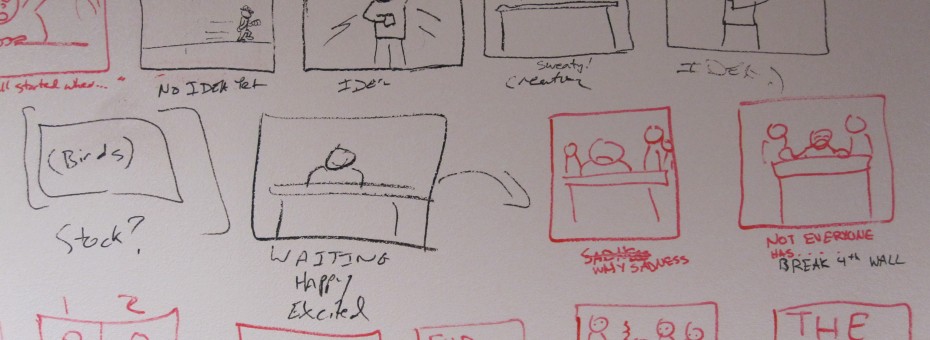 ll started when..."
NO IDEA Yet
IDEA
Sweaty!
Creature
IDEA
(Birds)
Stock?
WAITING
Happy
Excited
WHY SADNESS
NOT EVERYONE
HAS....
BREAK 4th WALL
1 2
THE